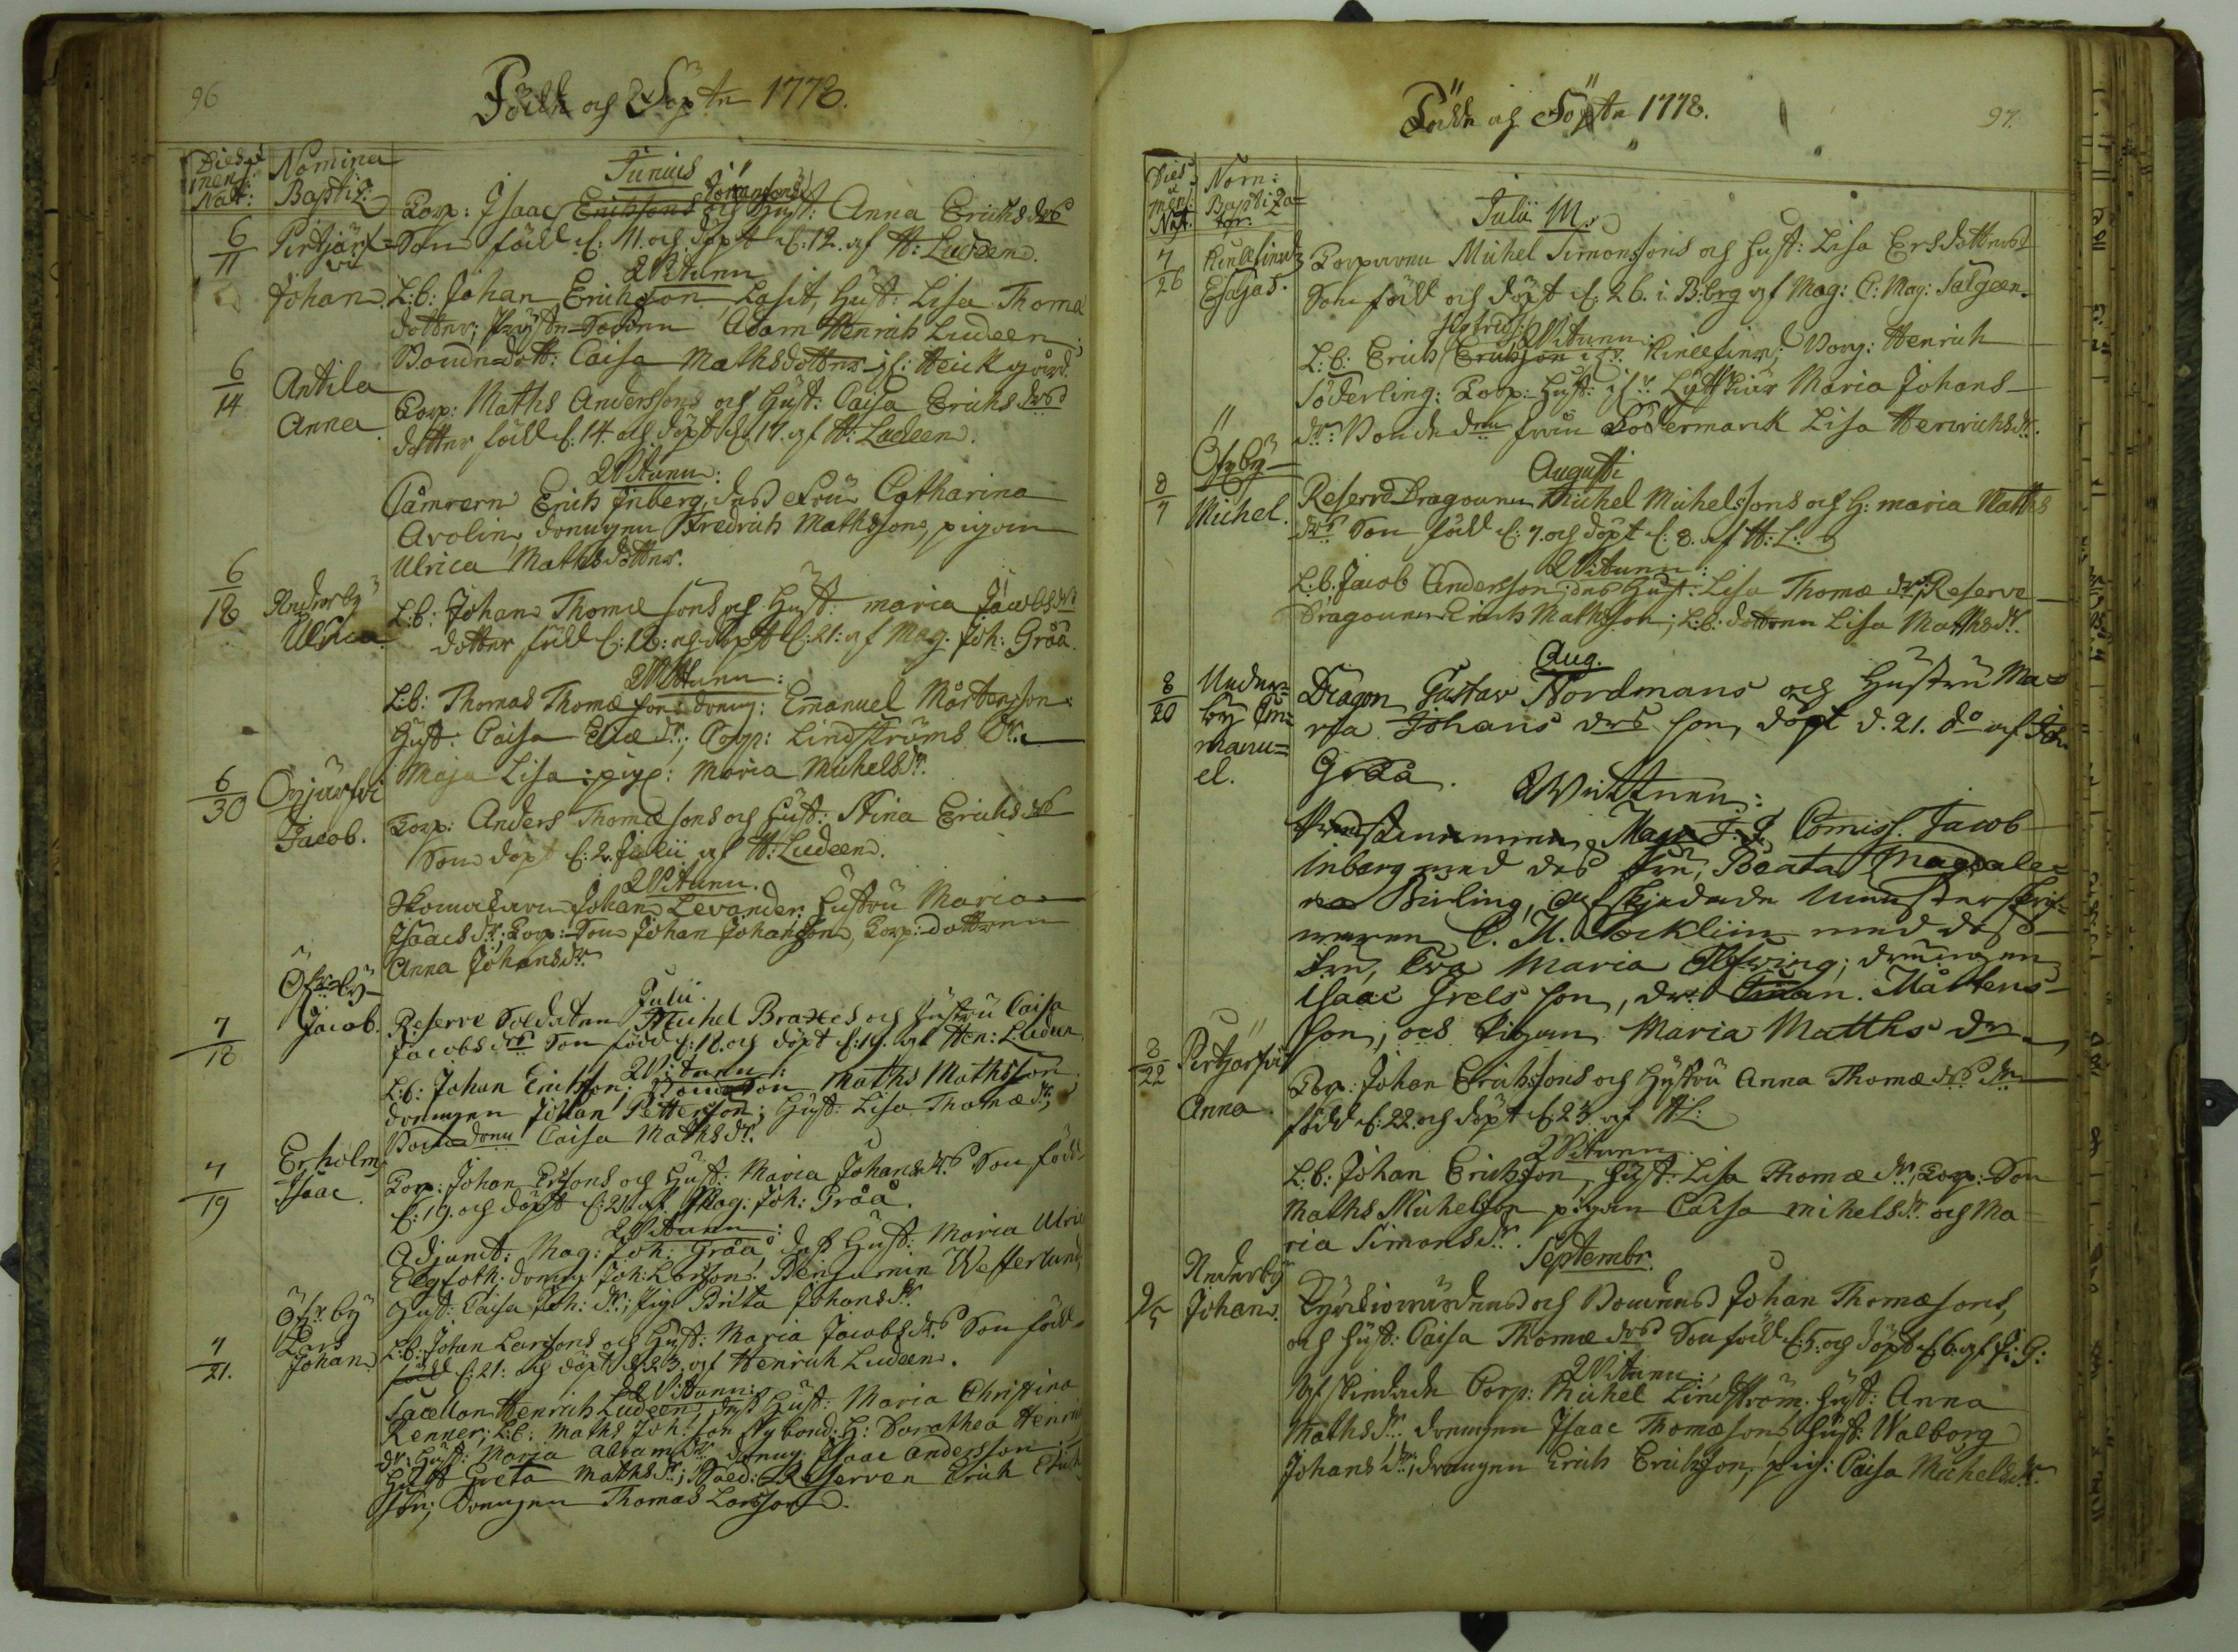 96
Födde och Döpte 1778.
Dies et mens: Nat:
Nomina Baptiz:
Junius
Torp: Isaac Erikssons Johanssons och Hust: Anna Erichs drs
6/11
Pertjärf=
vi
Son född d: 11. och döpt d: 12. af H: Ludeen.
Wittnen
Johan.
L:b: Johan Erichsson, Hust: Lisa Thomæ
dotter; Adam Henrich Ludeen,
Bonde=dott: Caisa Mathsdotter
6/14
Antila
Anna
Torp: Maths Anderssons och Hust: Caisa Erichs drs
dotter född d: 14. och döpt d. 17. af H: Ludeen.
Wittnen:
Erich Inberg, dess Fru Catharina
Avolin, drengen Fredrich Mathsson, pigan
Ulrica Mathsdotter.
6/18
Nederby
Ulrica
L:b: Johan Thomæ sons och Hust: maria Jacobs drs
dotter född d: 18: och döpt d: 21: af Mag. Joh: Gråå.
Wittnen:
L:b: Thomas Thomæ son; dreng: Emanuel Mårtensson
Hust: Caisa Eliæ dr.; Corp: Lindströms dr.
Maja Lisa; pig: Maria Michels dr.
6/30
Ojjärfvi
Jacob.
Torp: Anders Thomæ sons och Hust: Stina Erichs drs
Son döpt d: 2. Julii af H: Ludeen.
Wittnen.
Johan Levander, Hustru Maria
Isaacs dr.; Torp: Son Johan Johansson, Torp: dottren
Anna Johans dr.
Julii.
7/18
Öfr=by
Jacob.
Reserve Soldaten Michel Braxes och Hustru Caisa
Jacobs drs Son född d: 18. och döpt d: 19. af Hen: Ludeen
Wittnen:
L:b: Johan Erichsson; Bondeson Maths Mathsson
drengen Johan Pettersson; Hust: Lisa Thomæ dr.,
Caisa Maths dr.
7/19
Erholm
Isaac
Torp: Johan Ersons och Hust: Maria Johans drs Son född
d: 19. och döpt d: 21. af Mag: Joh: Gråå.
Wittnen:
Adjunct: Mag: Joh: Gråå, dess Hust: Maria Ulric
Elgfoth: dreng Joh: Larsson: Benjamin Westerlund,
Hust: Caisa Joh: dr.; Pig: Brita Johans dr.
7/21.
Öfr by
Lars
Johan
L:b: Johan Larssons och Hust: Maria Jacobs drs Son född
född d: 21: och döpt d. 23. af Henrich Ludeen.
Wittnen:
Sacellan Henrich Ludeen, dess Hust: Maria Christina
Renner; L:b: Maths Joh: son H: Dorothea Henric
dr: Hust: Maria Abram dr: dreng: Isaac Andersson
Hust Greta Maths dr.; Reserven Erich Erich
son; drengen Thomas Larsson.
97.
Födde och Döpte 1778.
Dies et men: Nat.
Nom: Baptiza=
tor.
Julii M.
7/26
Esajas.
Torparen Michel Simonssons och Hust: Lisa Ersdotters
Son född och döpt d. 26. i B:brg af Mag: C: Mag: Salgeen.
Wittnen:
L:b: Erich Erichsson Sigfrids; Borg: Henrich
Söderling: Torp: Hust: Maria Johans
dr: Bonde drn från Södermark Lisa Henrichs dr.
Augusti
8/7
Öfrby
Michel.
Reserve Dragounen Michel Michelssons och H: maria Maths
drs Son född d. 7. och döpt d. 8. af H: L:
Wittnen:
L:b. Jacob Andersson; des Hust: Lisa Thomæ dr, Reserve
Dragounen Erich Mathsson; L:b: dottren Lisa Maths dr.
Aug.
8/20
Neder=
by Em=
manu=
el.
Dragon Gustav Nordmans och Hustru Ma=
ria Johans drs son, döpt d. 21. do af Joh
Gråå.
Wittnen:
Comiss. Jacob
Inberg med des fru, Beata Magdale=
na Birling, Afskjedade Munsterskrif=
waren C. M. Nocklin med dess
fru, Eva Maria Elfving; drengen
Isaac Grels son, dr: Mårtens=
son, och Pigan Maria Matths dr.
8/22
Pertjärfvi
Anna.
Torp: Johan Erichssons och Hustru Anna Thomæ drs dr
född d. 22. och döpt d. 23. af H L:
Wittnen
L:b: Johan Erichsson, Hust: Lisa Thomæ dr., Torp: Son
Maths Michelsson pigan Caisa mikels dr. och Ma=
ria Simons dr.
Septembr.
9/5
Nederby
Johan.
Kyrkiowärdens och Bondens Johan Thomæ sons,
och Hust: Caisa Thomæ drs Son född d. 5. och döpt d. 6. af J: G:
Wittnen:
Afskiedade Corp: Michel Lindström, Hust: Anna
Maths dr. drengen Isaac Thomæson, Hust: Walborg
Johans dr., drengen Erich Erichsson, pig: Caisa Michels dr.